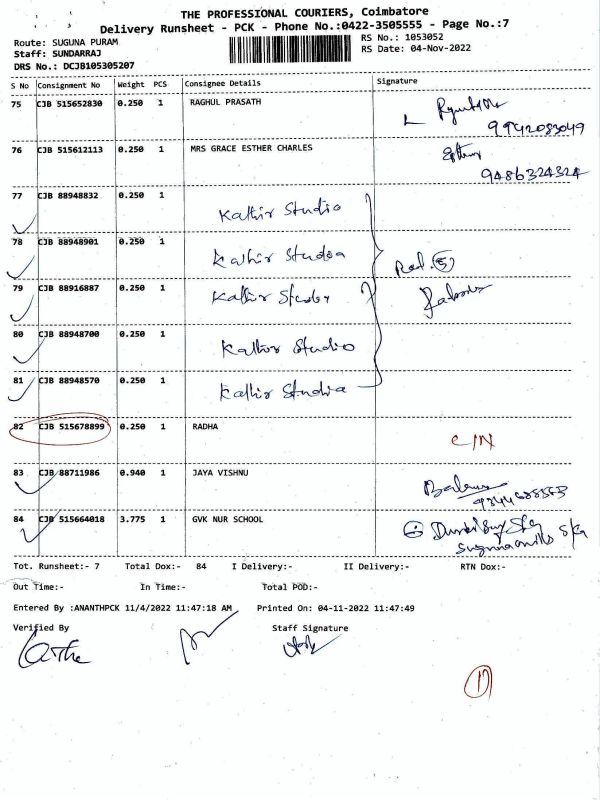 THE PROFESSIONAL COURIERS, Coimbatore
Delivery Runsheet - PCK - Phone No.:0422-3505555 - Page No.:7
Route: SUGUNA PURAM
RS No.: 1053052
Staff: SUNDARRAJ
RS Date: 04-Nov-2022
DRS No.: DCJB105305207
S No Consignment No Weight PCS Consignee Details Signature
75 CJB 515652830 0.250 1 RAGHUL PRASATH
9942083049
76 CJB 515612113 0.250 1 MRS GRACE ESTHER CHARLES
9486324324
77 CJB 88948832 0.250 1 Kathir Studio
78 CJB 88948901 0.250 1 Kathir Studio
79 CJB 88916887 0.250 1 Kathir Studio
80 CJB 88948700 0.250 1 Kathir Studio
81 CJB 88948570 0.250 1 Kathir Studio
82 CJB 515678899 0.250 1 RADHA C/N
83 CJB 88711986 0.940 1 JAYA VISHNU
84 CJB 515664018 3.775 1 GVK NUR SCHOOL
Tot. Runsheet:- 7 Total Dox:- 84 I Delivery:- II Delivery:- RTN Dox:-
Out Time:- In Time:- Total POD:-
Entered By :ANANTHPCK 11/4/2022 11:47:18 AM Printed On: 04-11-2022 11:47:49
Verified By Staff Signature